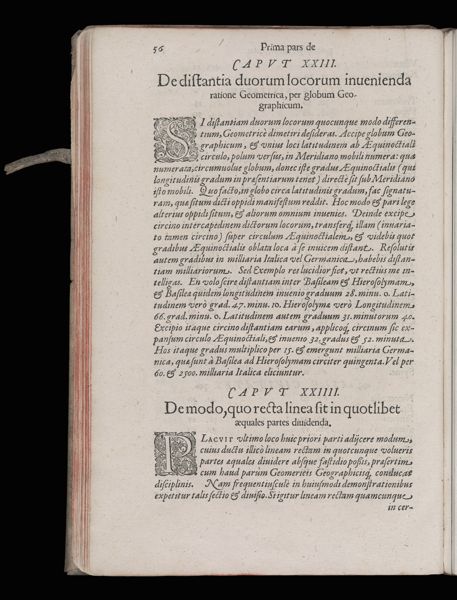 56 Prima pars de
CAPVT XXIII.
De distantia duorum locorum inuenienda
ratione Geometrica, per globum Geo-
graphicum.
SI distantiam duorum locorum quocunque modo differen-
tium, Geometricè dimetiri desideras. Accipe globum Geo-
graphicum, & vnius loci latitudinem ab Æquinoctiali
circulo, polum versus, in Meridiano mobili numera: qua
numerata, circumuolue globum, donec iste gradus Æquinoctialis (qui
longitudinis gradum in præsentiarum tenet) directè sit sub Meridiano
isto mobili. Quo facto, in globo circa latitudinis gradum, fac signatu-
ram, quæ situm dicti oppidi manifestum reddit. Hoc modo & pari lege
alterius oppidi situm, & aliorum omnium inuenies. Deinde excipe
circino intercapedinem dictorum locorum, transferq́, illam (inuaria-
to tamen circino) super circulum Æquinoctialem, & videbis quot
gradibus Æquinoctialis oblata loca à se inuicem distant. Resolutis
autem gradibus in milliaria Italica vel Germanica, habebis distan-
tiam milliariorum. Sed Exemplo res lucidior fiet, vt rectius me in-
telligas. En volo scire distantiam inter Basileam & Hierosolymam,
& Basileæ quidem longitudinem inuenio graduum 28. minu. 0. Lati-
tudinem verò grad. 47. minu. 10. Hierosolymæ verò Longitudinem
66. grad. minu. 0. Latitudinem autem graduum 31. minutorum 40.
Excipio itaque circino distantiam earum, applicoq́, circinum sic ex-
pansum circulo Æquinoctiali, & inuenio 32. gradus & 52. minuta.
Hos itaque gradus multiplico per 15. & emergunt milliaria Germa-
nica, quæ sunt à Basilea ad Hierosolymam circiter quingenta. Vel per
60. & 2500. milliaria Italica eliciuntur.
CAPVT XXIIII.
De modo, quo recta linea sit in quotlibet
æquales partes diuidenda.
PLACVIT vltimo loco huic priori parti adijcere modum,
cuius ductu illicò lineam rectam in quotcunque volueris
partes æquales diuidere absque fastidio possis, præsertim
cum haud parùm Geometricis Geographicisq́, conducat
disciplinis. Nam frequentiusculè in huiusmodi demonstrationibus
expetitur talis sectio & diuisio. Sit igitur lineam rectam quamcunque
in cer-